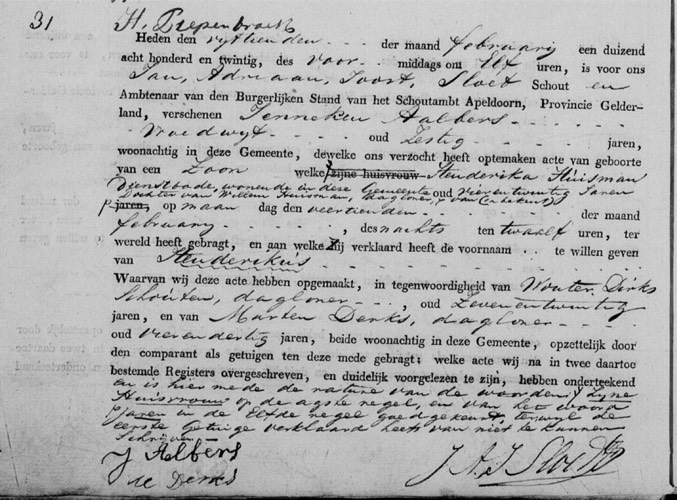 31 H. Piepenbroek
Heden den vyftienden der maand february een duizend
acht honderd en twintig, des voor middags om Elf uren, is voor ons
Jan, Adriaan, Joost, Sloet Schout en
Ambtenaar van den Burgerlijken Stand van het Schoutambt Apeldoorn, Provincie Gelder-
land, verschenen Jenneken Aalbers
Vroedwyf oud Zestig jaren,
woonachtig in deze Gemeente, dewelke ons verzocht heeft optemaken acte van geboorte
van een Zoon welke zijne huisvrouw Henderika Huisman
Dienstbode, wonende in deze Gemeente oud Vierentwintig Jaren
Dochter van Willem Huisman, dagloner, & van
jaren, op maan dag den veertienden der maand
february, des nachts ten twaalf uren, ter
wereld heeft gebragt, en aan welke zij verklaard heeft de voornaam te willen geven
van Henderikus
Waarvan wij deze acte hebben opgemaakt, in tegenwoordigheid van Wouter Dirks
Schouten, dagloner, oud Zevenentwintig
jaren, en van Marten Derks, dagloner
oud vierendertig jaren, beide woonachtig in deze Gemeente, opzettelijk door
den comparant als getuigen ten deze mede gebragt; welke acte wij na in twee daartoe
bestemde Registers overgeschreven, en duidelijk voorgelezen te zijn, hebben onderteekend
en is hier mede de rature van de woorden zyne
Huisvrouw op de agste regel, en van het woord
jaren in de Elfde regel goedgekeurd, terwyl de
eerste getuige verklaard heeft van niet te kunnen
Schrijven
J Aalbers
de Derks
J A J Sloet